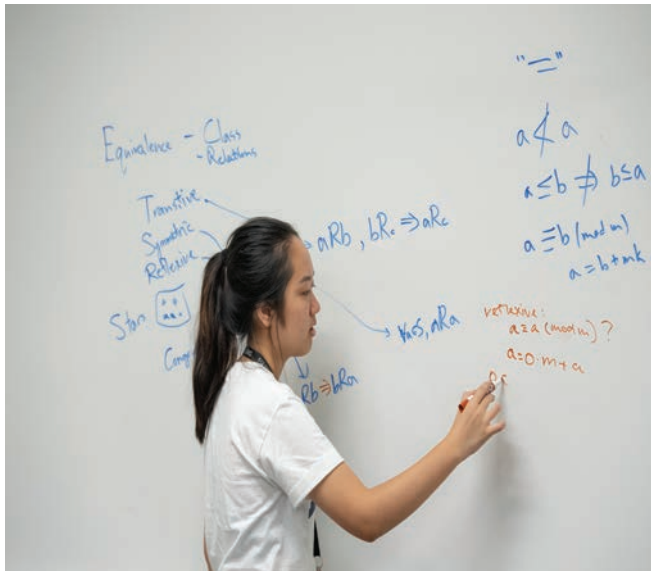 Equivalence - Class
- Relations
Transitive
Symmetric
Reflexive
aRb, bRc ⇒ aRc
∀a∈S, aRa
Rb ⇒ bRa
"="
a ≮ a
a ≤ b ⇏ b ≤ a
a ≡ b (mod m)
a = b + mk
reflexive:
a ≡ a (mod m) ?
a = 0·m + a